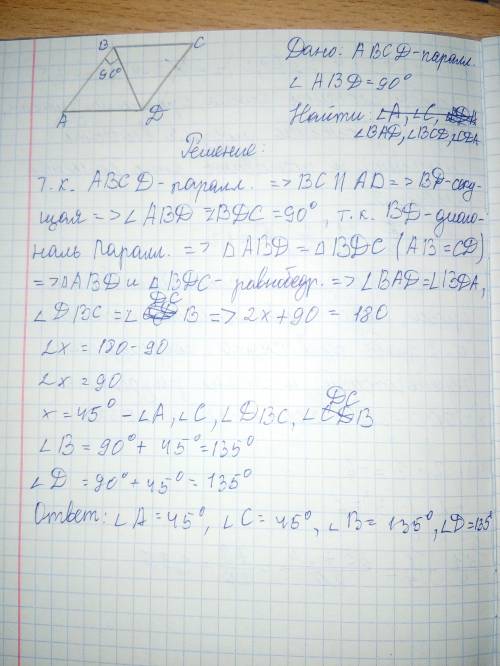 B C
90°
A D
Дано: ABCD-паралл.
∠ABD=90°
Найти ∠A, ∠C,
∠BAD, ∠BCD, ∠CDA
Решение:
Т.к. ABCD-паралл. => BC || AD => BD-секу-
щая => ∠ABD = ∠BDC = 90°, т.к. BD-диаго-
наль паралл. => △ABD = △BDC (AB=CD)
=> △ABD и △BDC - равнобедр. => ∠BAD=∠BDA,
∠DBC = ∠DCB => 2x+90 = 180
2x = 180-90
2x = 90
x = 45° - ∠A, ∠C, ∠DBC, ∠DCB
∠B = 90° + 45° = 135°
∠D = 90° + 45° = 135°
Ответ: ∠A = 45°, ∠C = 45°, ∠B = 135°, ∠D = 135°